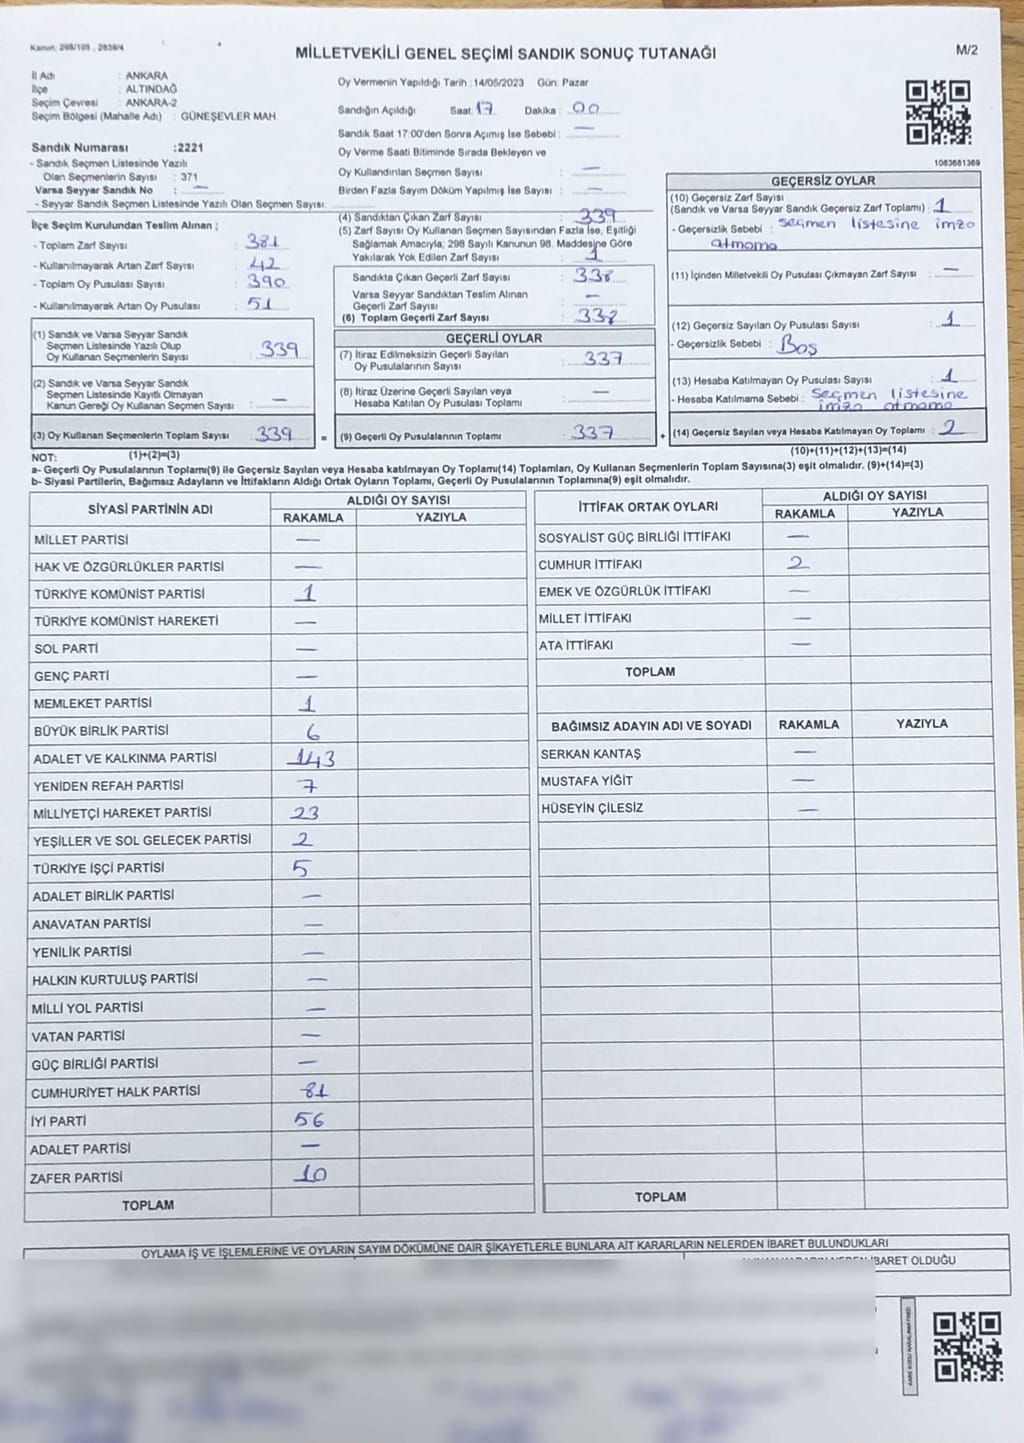 Kanun: 298/105 , 2839/4
MİLLETVEKİLİ GENEL SEÇİMİ SANDIK SONUÇ TUTANAĞI
M/2
İl Adı : ANKARA
İlçe : ALTINDAĞ
Seçim Çevresi : ANKARA-2
Seçim Bölgesi (Mahalle Adı) : GÜNEŞEVLER MAH.
Oy Vermenin Yapıldığı Tarih :14/05/2023 Gün: Pazar
Sandığın Açıldığı Saat: 17 Dakika : 00
Sandık Saat 17:00'den Sonra Açımış İse Sebebi : —
Oy Verme Saati Bitiminde Sırada Bekleyen ve
Oy Kullandırılan Seçmen Sayısı : —
Birden Fazla Sayım Döküm Yapılmış İse Sayısı : —
1083681369
Sandık Numarası :2221
- Sandık Seçmen Listesinde Yazılı
Olan Seçmenlerin Sayısı : 371
Varsa Seyyar Sandık No : —
- Seyyar Sandık Seçmen Listesinde Yazılı Olan Seçmen Sayısı:
İlçe Seçim Kurulundan Teslim Alınan ;
- Toplam Zarf Sayısı : 381
- Kullanılmayarak Artan Zarf Sayısı : 42
- Toplam Oy Pusulası Sayısı : 390
- Kullanılmayarak Artan Oy Pusulası : 51
(1) Sandık ve Varsa Seyyar Sandık
Seçmen Listesinde Yazılı Olup
Oy Kullanan Seçmenlerin Sayısı : 339
(2) Sandık ve Varsa Seyyar Sandık
Seçmen Listesinde Kayıtlı Olmayan
Kanun Gereği Oy Kullanan Seçmen Sayısı : —
(3) Oy Kullanan Seçmenlerin Toplam Sayısı : 339
(4) Sandıktan Çıkan Zarf Sayısı : 339
(5) Zarf Sayısı Oy Kullanan Seçmen Sayısından Fazla İse, Eşitliği
Sağlamak Amacıyla, 298 Sayılı Kanunun 98. Maddesine Göre
Yakılarak Yok Edilen Zarf Sayısı : 1
Sandıkta Çıkan Geçerli Zarf Sayısı : 338
Varsa Seyyar Sandıktan Teslim Alınan
Geçerli Zarf Sayısı : —
(6) Toplam Geçerli Zarf Sayısı : 338
GEÇERLİ OYLAR
(7) İtiraz Edilmeksizin Geçerli Sayılan
Oy Pusulalarının Sayısı : 337
(8) İtiraz Üzerine Geçerli Sayılan veya
Hesaba Katılan Oy Pusulası Toplamı : —
= (9) Geçerli Oy Pusulalarının Toplamı : 337
GEÇERSİZ OYLAR
(10) Geçersiz Zarf Sayısı
(Sandık ve Varsa Seyyar Sandık Geçersiz Zarf Toplamı) : 1
- Geçersizlik Sebebi : Seçmen listesine imza
atmama
(11) İçinden Milletvekili Oy Pusulası Çıkmayan Zarf Sayısı : —
(12) Geçersiz Sayılan Oy Pusulası Sayısı : 1
- Geçersizlik Sebebi : Boş
(13) Hesaba Katılmayan Oy Pusulası Sayısı : 1
- Hesaba Katılmama Sebebi : Seçmen listesine
imza atmama
+ (14) Geçersiz Sayılan veya Hesaba Katılmayan Oy Toplamı : 2
NOT: (1)+(2)=(3)
(10)+(11)+(12)+(13)=(14)
a- Geçerli Oy Pusulalarının Toplamı(9) ile Geçersiz Sayılan veya Hesaba katılmayan Oy Toplamı(14) Toplamları, Oy Kullanan Seçmenlerin Toplam Sayısına(3) eşit olmalıdır. (9)+(14)=(3)
b- Siyasi Partilerin, Bağımsız Adayların ve İttifakların Aldığı Ortak Oyların Toplamı, Geçerli Oy Pusulalarının Toplamına(9) eşit olmalıdır.
SİYASİ PARTİNİN ADI
ALDIĞI OY SAYISI
RAKAMLA YAZIYLA
MİLLET PARTİSİ —
HAK VE ÖZGÜRLÜKLER PARTİSİ —
TÜRKİYE KOMÜNİST PARTİSİ 1
TÜRKİYE KOMÜNİST HAREKETİ —
SOL PARTİ —
GENÇ PARTİ —
MEMLEKET PARTİSİ 1
BÜYÜK BİRLİK PARTİSİ 6
ADALET VE KALKINMA PARTİSİ 143
YENİDEN REFAH PARTİSİ 7
MİLLİYETÇİ HAREKET PARTİSİ 23
YEŞİLLER VE SOL GELECEK PARTİSİ 2
TÜRKİYE İŞÇİ PARTİSİ 5
ADALET BİRLİK PARTİSİ —
ANAVATAN PARTİSİ —
YENİLİK PARTİSİ —
HALKIN KURTULUŞ PARTİSİ —
MİLLİ YOL PARTİSİ —
VATAN PARTİSİ —
GÜÇ BİRLİĞİ PARTİSİ —
CUMHURİYET HALK PARTİSİ 81
İYİ PARTİ 56
ADALET PARTİSİ —
ZAFER PARTİSİ 10
TOPLAM
İTTİFAK ORTAK OYLARI
ALDIĞI OY SAYISI
RAKAMLA YAZIYLA
SOSYALİST GÜÇ BİRLİĞİ İTTİFAKI —
CUMHUR İTTİFAKI 2
EMEK VE ÖZGÜRLÜK İTTİFAKI —
MİLLET İTTİFAKI —
ATA İTTİFAKI —
TOPLAM
BAĞIMSIZ ADAYIN ADI VE SOYADI RAKAMLA YAZIYLA
SERKAN KANTAŞ —
MUSTAFA YİĞİT —
HÜSEYİN ÇİLESİZ —
TOPLAM
OYLAMA İŞ VE İŞLEMLERİNE VE OYLARIN SAYIM DÖKÜMÜNE DAİR ŞİKAYETLERLE BUNLARA AİT KARARLARIN NELERDEN İBARET BULUNDUKLARI
İBARET OLDUĞU